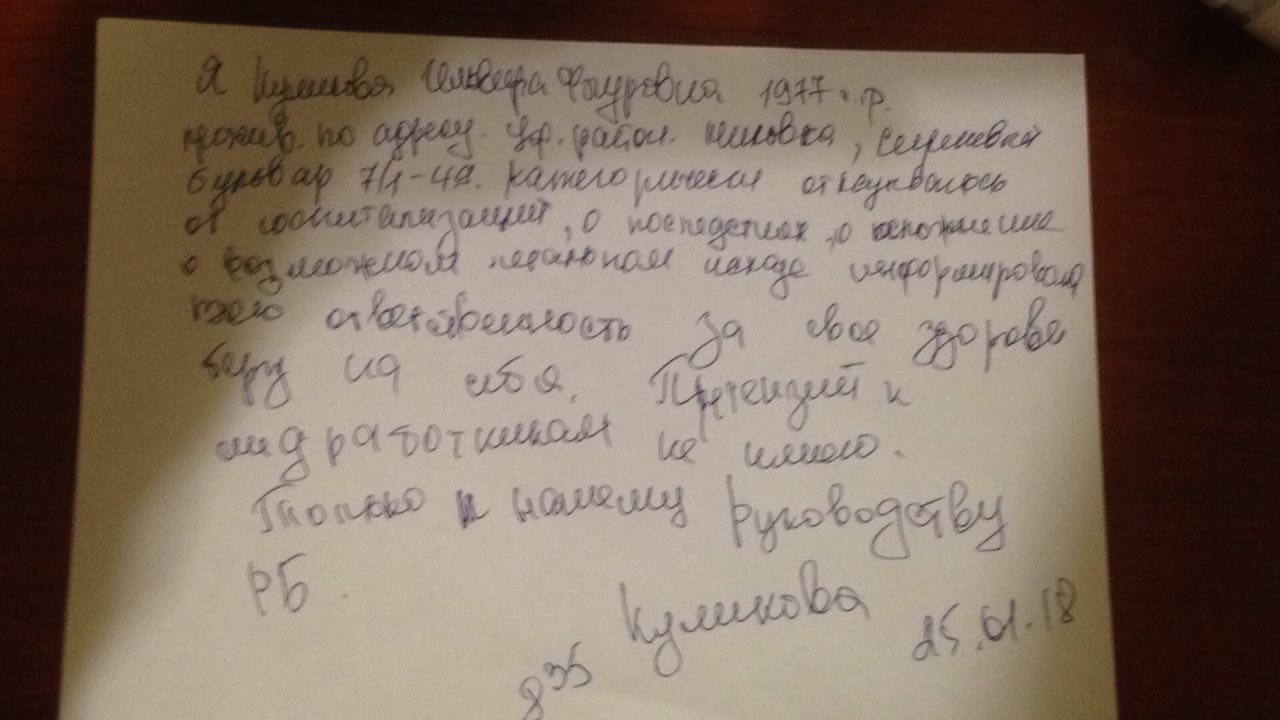 Я Куликова Ильвира Фауровна 1977 г.р.
прожив. по адресу. Уф. район. Миловка, Сиреневый
бульвар 7/1-49. категорически отказываюсь
от госпитализаций, о последствиях, о осложнение
о возможном летальном исходе информирована
всю ответственность за свое здоровье
беру на себя. Претензий к
мед работникам не имею.
Только к нашему руководству
РБ.
Куликова
8 35 25.01.18